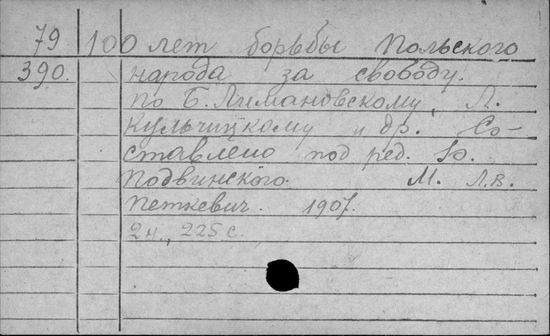 79 100 лет борьбы Польского
390. народа за свободу.
по Б. Лимановскому, Л.
Кульчицкому и др. Со-
ставлено под ред. Ю.
Подвинского. М. Л.В.
Петкевич. 1907.
2н., 225 с.